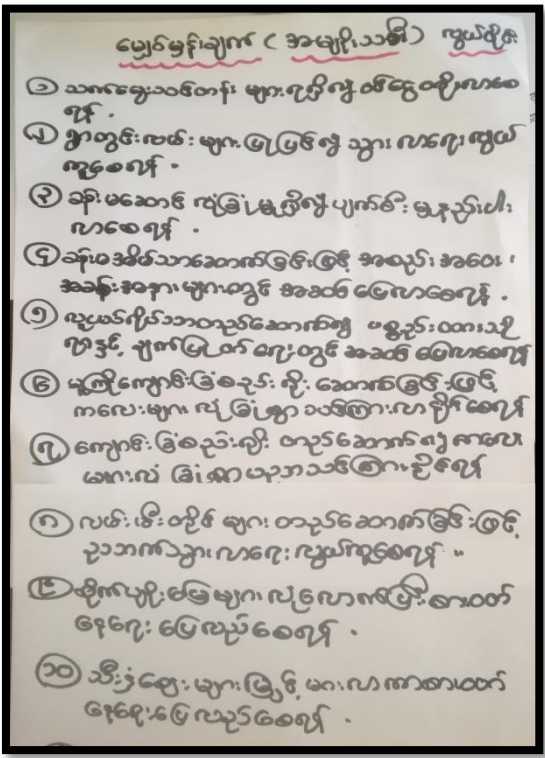 မျှော်မှန်းချက် ( အမျိုးသမီး ) လွယ်လိုင်း
၁ သက်မွေးသင်တန်း များရရှိလို့ ဝင်ငွေ တိုးလာစေ
ရန် .
၂ ရွာတွင်းလမ်း များ ပြုပြင်လို့ သွား လာရေး လွယ်
ကူစေရန် .
၃ ခန်းမဆောင် လုံခြုံမှုရှိလို့ ပျက်စီး မှုနည်းပါး
လာစေရန် .
၄ ခန်းမ အိမ်သာဆောက်ခြင်းဖြင့် အစည်း အဝေး ၊
အခန်းအနား များတွင် အဆင် ပြေလာစေရန် .
၅ လူငယ်ရိပ်သာတည်ဆောက်လို့ ပစ္စည်းထားသို
ရာနှင့် ချက်ပြုတ် ရေးတွင် အဆင် ပြေလာစေရန်
၆ မူကြိုကျောင်းခြံစည်း ရိုး ဆောက်ခြင်းဖြင့်
ကလေးများ လုံခြုံစွာ သင်ကြားလာ နိုင်စေရန်
၇ ကျောင်း ခြံစည်းရိုး တည်ဆောက် ၍ ကလေး
များလုံ ခြုံစွာ ပညာသင်ကြားနိုင်ရန်
၈ လမ်းမီးတိုင် များ တည်ဆောက်ခြင်းဖြင့်
ညဘက်သွားလာရေး လွယ်ကူစေရန် "
၉ စိုက်ပျိုးမြေများ လုံလောက်ပြီး စားဝတ်
နေရေး ပြေလည်စေရန် .
၁၀ သီးနှံဈေး များမြင့် မားလာကာစားဝတ်
နေရေးပြေလည်စေရန် .